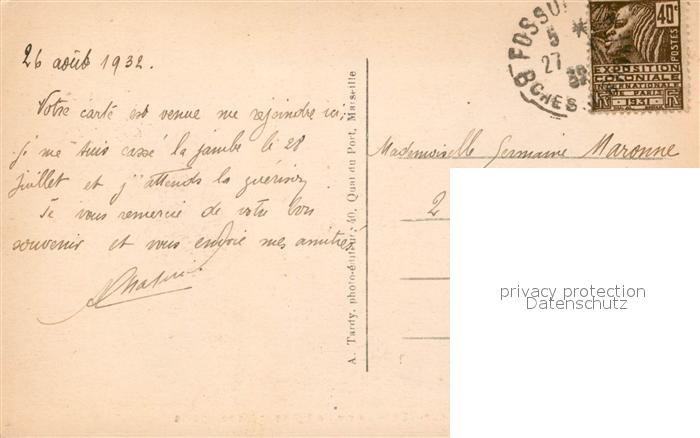 26 août 1932.
Votre carte est venue me rejoindre ici;
je me suis cassé la jambe le 28
juillet et j'attends la guérison.
Je vous remercie de votre bon
souvenir et vous envoie mes amitiés
A. Tardy, photo-éditeur, 40, Quai du Port, Marseille
Mademoiselle Germaine Maronne
2
FOSSU
5 *
27
32
BCHES
40c
POSTES
EXPOSITION
COLONIALE
INTERNATIONALE
PARIS
1931
RF
privacy protection
Datenschutz